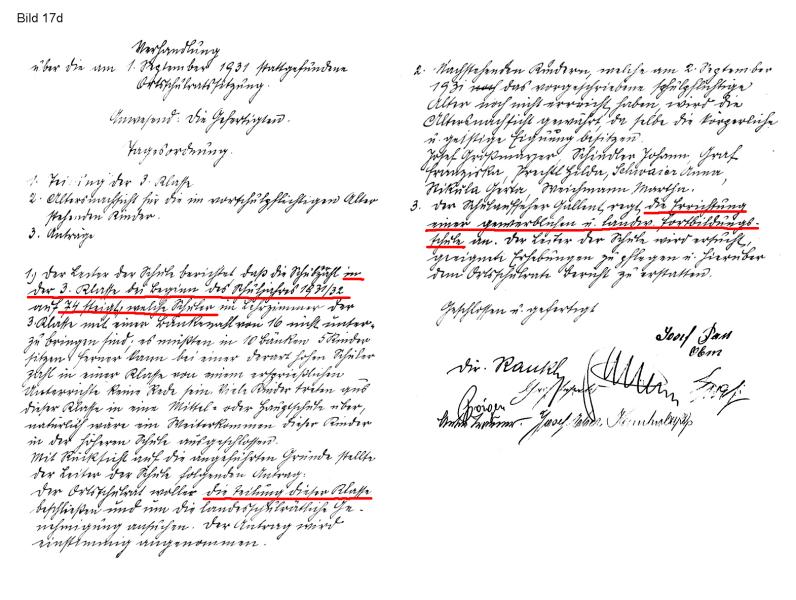 Bild 17d
Verhandlung
über die am 1. September 1931 stattgefundene
Ortsschulratssitzung.
Anwesend: Die Gefertigten.
Tagesordnung.
1. Teilung der 3. Klasse
2. Altersnachsicht für die im vorschulpflichtigen Alter
stehenden Kinder.
3. Anträge
1.) Der Leiter der Schule berichtet daß die Schulzahl in
der 3. Klasse bei Beginn des Schuljahres 1931/32
auf 74 steigt, welche Schüler im Lehrzimmer der
3. Klasse mit einer Bänkezahl von 16 nicht unter-
zubringen sind; es müßten in 10 Bänken 5 Kinder
sitzen. Ferner kann bei einer derart hohen Schüler
zahl in einer Klasse von einem ersprießlichen
Unterrichte keine Rede sein. Viele Kinder treten aus
dieser Klasse in eine Mittel- oder Hauptschule über,
natürlich wäre ein Weiterkommen dieser Kinder
in der höheren Schule ausgeschlossen.
Mit Rücksicht auf die angeführten Gründe stellte
der Leiter der Schule folgenden Antrag:
Der Ortsschulrat wolle die Teilung dieser Klasse
beschließen und um die landesschulrätliche Ge-
nehmigung ansuchen. Der Antrag wird
einstimmig angenommen.
2. Nachstehenden Kindern, welche am 2. September
1931 noch das vorgeschriebene schulpflichtige
Alter noch nicht erreicht haben, wird die
Altersnachsicht gewährt da selbe die körperliche
u. geistige Eignung besitzen.
Josef Großmayer, Schindler Johann, Graf
Franziska, Prechtl Hilda, Schwaier Anna,
Nikula Gerta, Weichmann Martha.
3. Der Schulaufseher Gallent regt die Errichtung
einer gewerblichen u. landw. Fortbildungs-
schule an. Der Leiter der Schule wird ersucht,
geeignete Erhebungen zu pflegen u. hierüber
dem Ortsschulrate Bericht zu erstatten.
Geschlossen u. gefertigt
Josef
Obm
Dir. Rauch
Josef